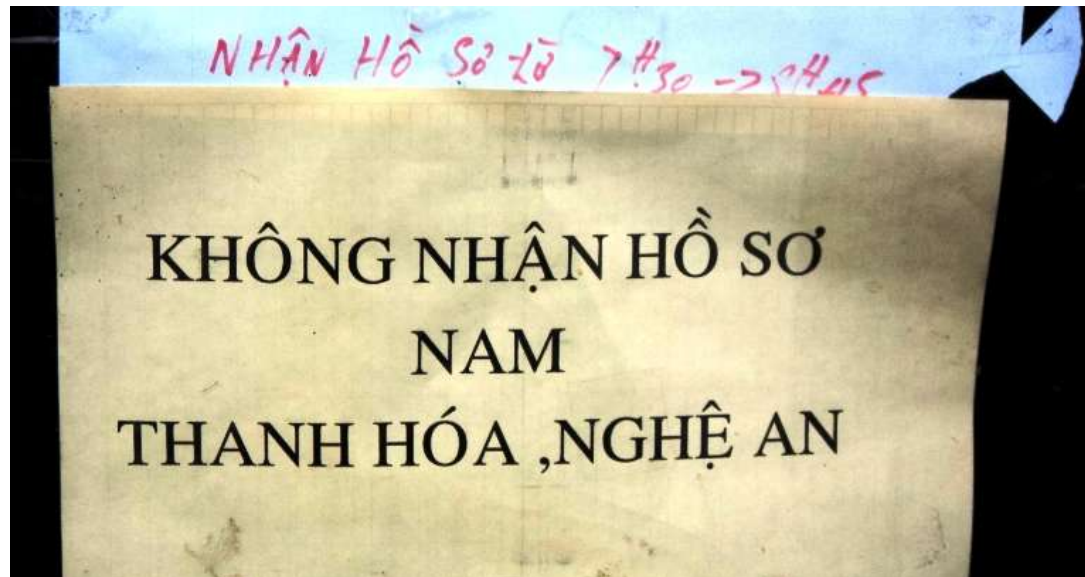 NHẬN HỒ SƠ từ 7H30 -> 8H45
KHÔNG NHẬN HỒ SƠ
NAM
THANH HÓA ,NGHỆ AN